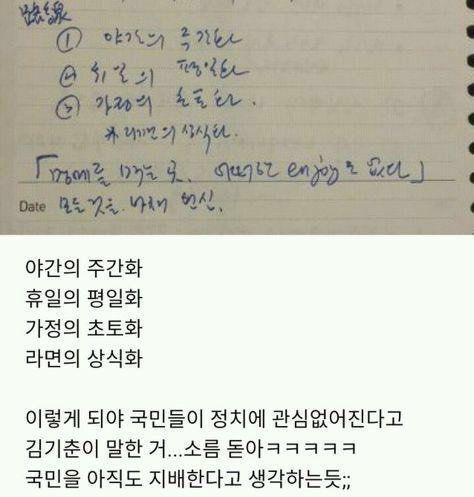 ① 야간의 주간화
② 휴일의 평일화
③ 가정의 초토화.
※라면의 상식화.
「명예를 먹는 곳. 어떠한 enjoy도 없다」
Date 모든 것을 바쳐 헌신.
야간의 주간화
휴일의 평일화
가정의 초토화
라면의 상식화
이렇게 되야 국민들이 정치에 관심없어진다고
김기춘이 말한 거...소름 돋아ㅋㅋㅋㅋㅋ
국민을 아직도 지배한다고 생각하는듯;;